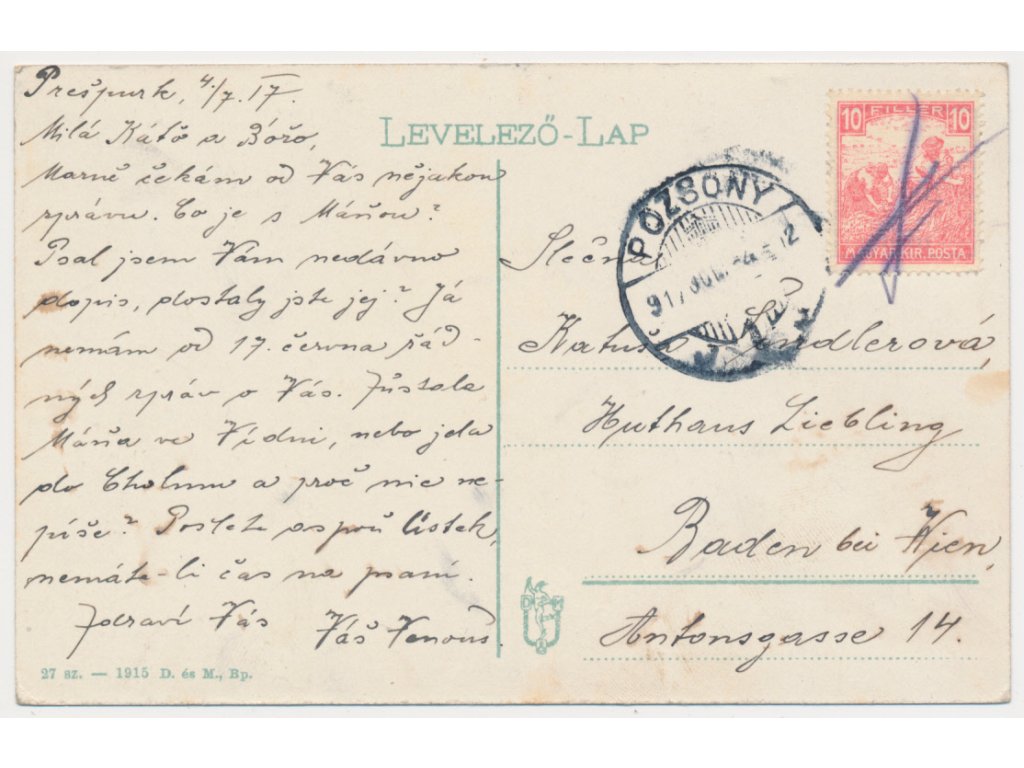 Prešpurk, 4./7. 17.
Milá Káťo a Bóžo,
Marně čekám od Vás nějakou
zprávu. Co je s Máňou?
Psal jsem Vám nedávno
dopis, dostaly jste jej? Já
nemám od 17. června řád-
ných zpráv o Vás. Zůstala
Máňa ve Vídni, nebo jela
do Cholmu a proč nic ne-
píše? Pošlete aspoň lístek,
nemáte-li čas na psaní.
Zdraví Vás
Váš Venouš
27 sz. — 1915 D. és M., Bp.
LEVELEZŐ-LAP
10 FILLÉR 10
MAGYAR KIR. POSTA
POZSONY
917
Slečna
Katuš
Huthaus Liebling
Baden bei Wien,
Antonsgasse 14.
D M